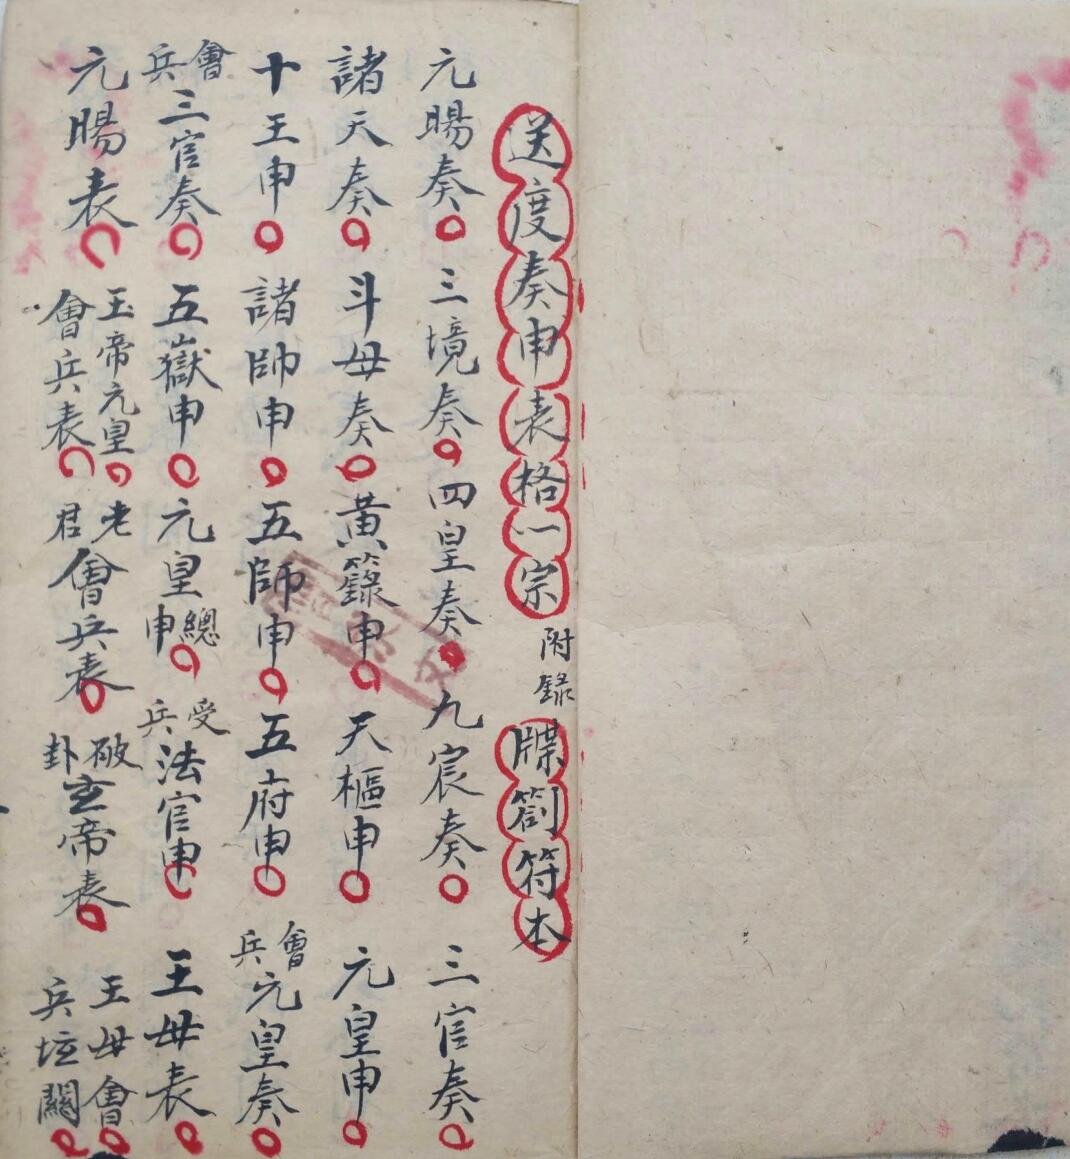 送度奏申表格一宗 附錄 牒劄符本
元賜奏 三境奏 四皇奏 九宸奏 三官奏
諸天奏 斗母奏 黃籙申 天樞申 元皇申
十王申 諸帥申 五師申 五府申 會兵元皇奏
會兵三官奏 五嶽申 元皇總申 受兵法官申 王母表
元賜表 玉帝元皇會兵表 老君會兵表 破卦玄帝表 王母會兵坛關